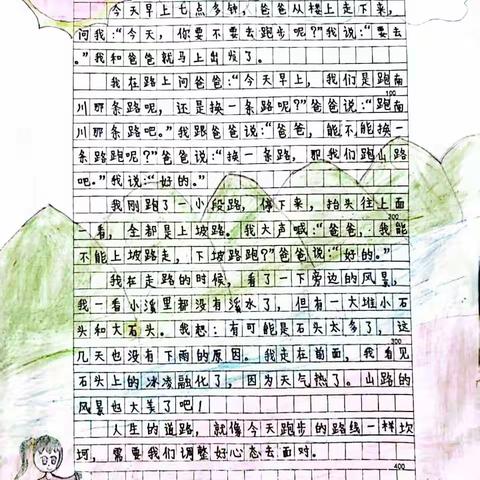 今天早上七点多钟，爸爸从楼上走下来，
问我：“今天，你要不要去跑步呢？”我说：“要去
。”我和爸爸就马上出发了。
我在路上问爸爸：“今天早上，我们是跑南
100
川那条路呢，还是换一条路呢？”爸爸说：“跑南
川那条路吧。”我跟爸爸说：“爸爸，能不能换一
条路跑呢？”爸爸说：“换一条路，那我们跑山路
吧。”我说：“好的。”
我刚跑了一小段路，停下来，抬头往上面
200
一看，全都是上坡路。我大声喊：“爸爸，我能
不能上坡路走，下坡路跑？”爸爸说：“好的。”
我在走路的时候，看了一下旁边的风景，
我一看小溪里都没有溪水了，但有一大堆小石
头和大石头。我想：有可能是石头太多了，这
300
几天也没有下雨的原因。我走在前面，我看见
石头上的冰凌融化了，因为天气热了。山路的
风景也太美了吧！
人生的道路，就像今天跑步的路线一样坎
坷，需要我们调整好心态去面对。
400